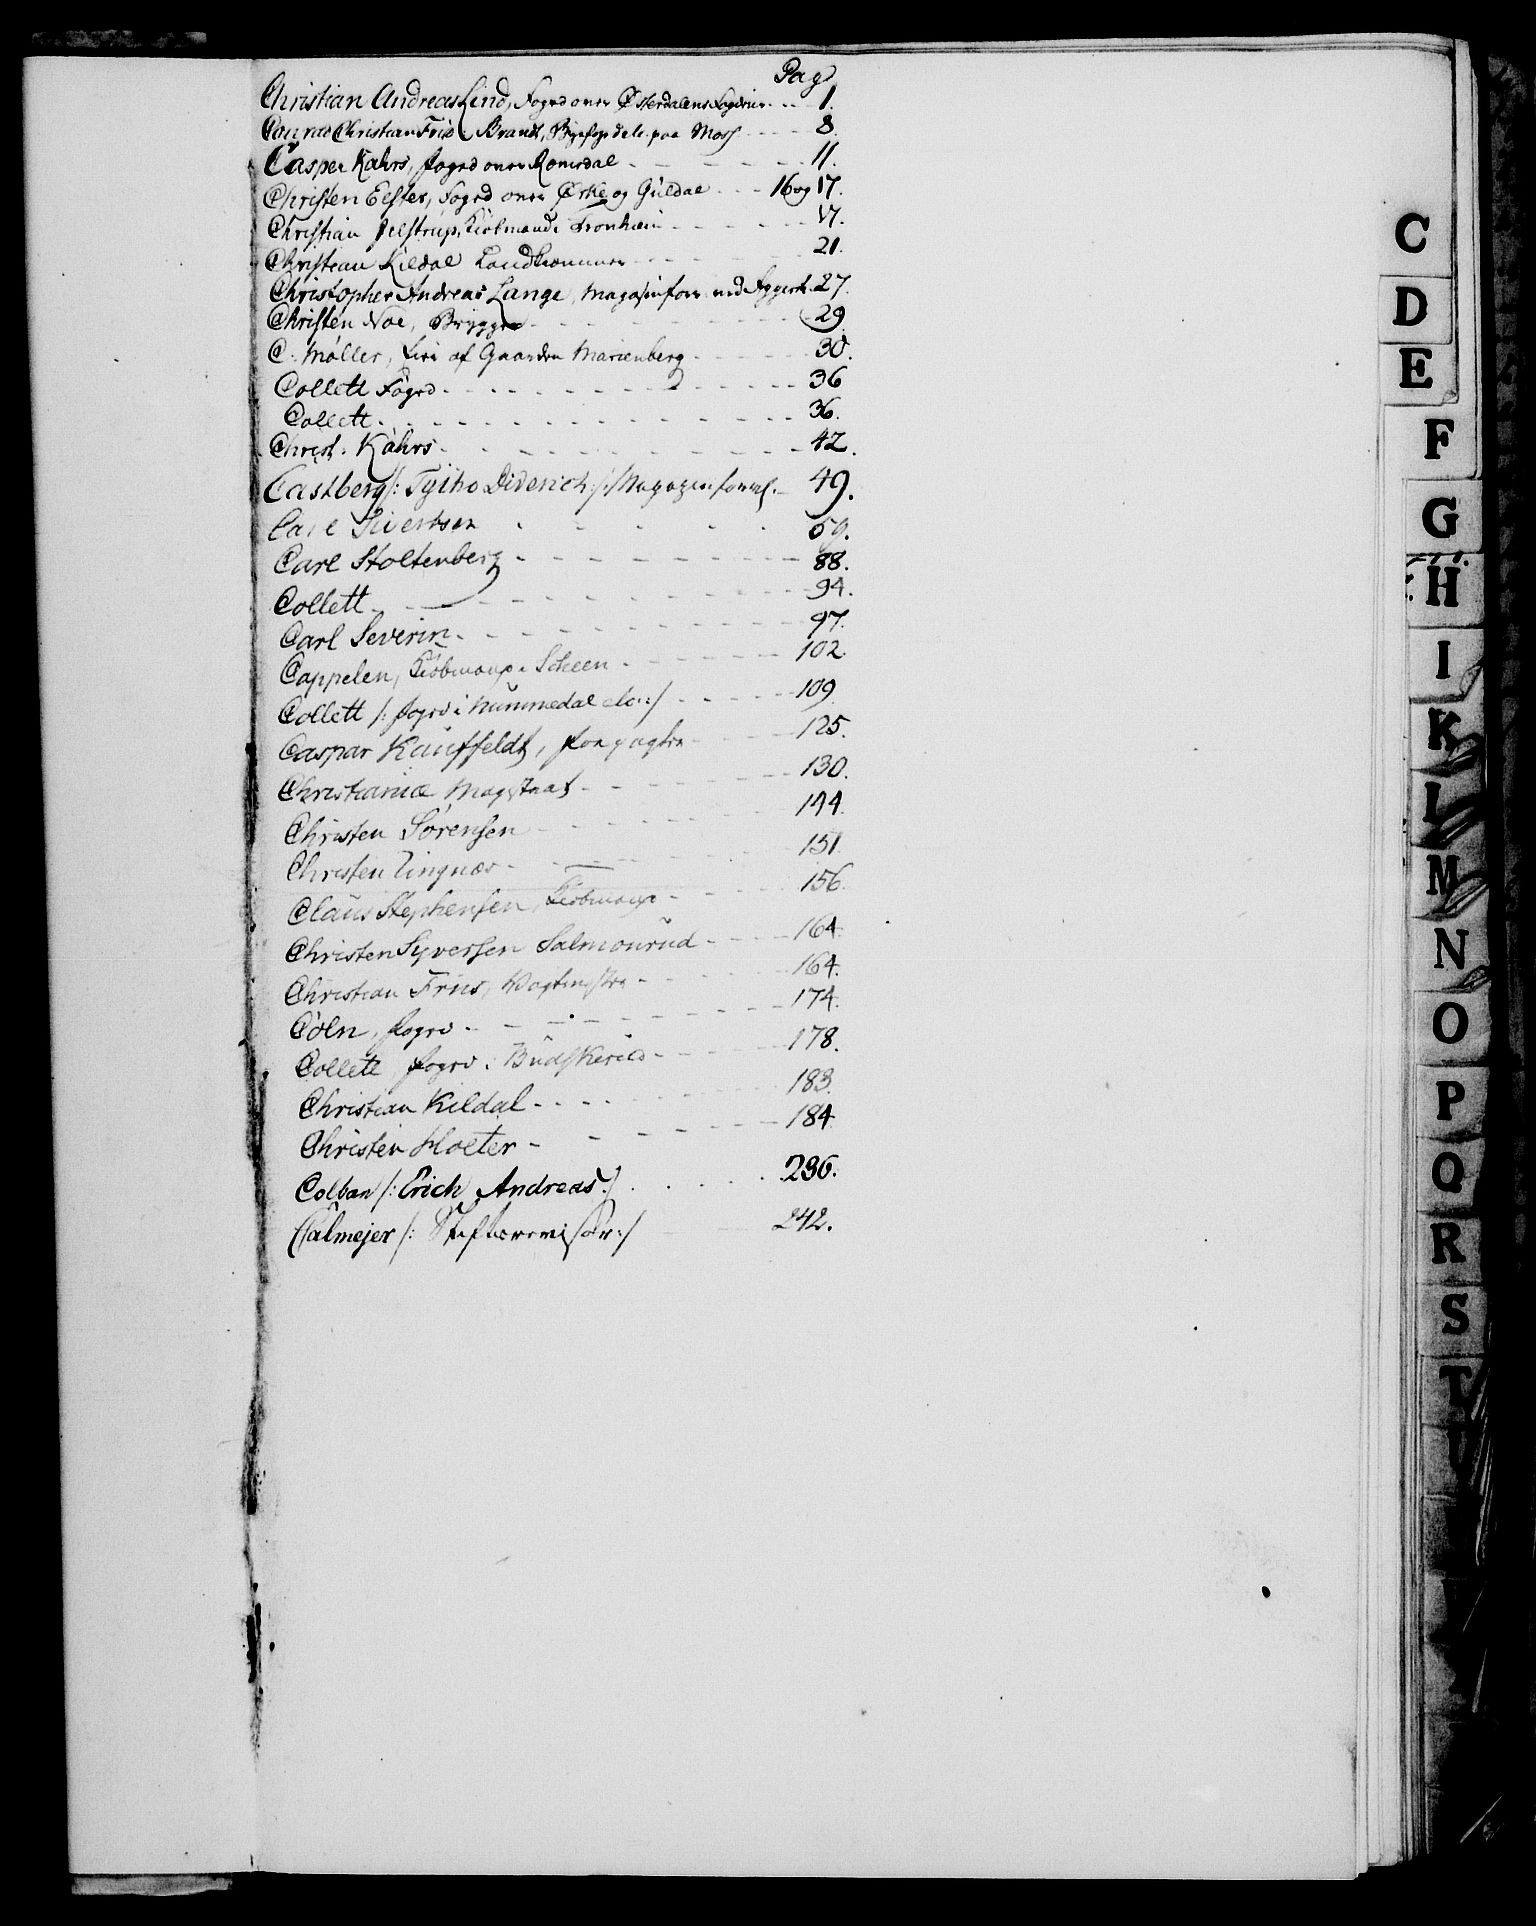 Pag
Christian Andreas Lind, Foged over Østerdalens Fogderie 1.
Conrad Christian Frid: Brandt, paa Moss 8.
Casper Kahrs, foged over Romsdal 11.
Christen Elster, Foged over Ørke og Guldal 16 og 17.
Christian Jelstrup, Kiøbmand i Tronhiem 17.
Christian Kildal Landkræmmer 21.
Christopher Andreas Lange, Magasinforv: ved Aggersh. 27.
Christen Noe, Brygger 29
C. Møller, Eier af Gaarden Marienberg 30.
Collett Foged 36
Collett 36.
Christ. Kahrs 42.
Castberg /: Tycho Diderich :/ Magazinforvalt. 49.
Carl Sivertsen 59.
Carl Stoltenberg 88.
Collett 94.
Carl Severin 97.
Cappelen, Kiøbmand i Scheen 102.
Collett /: foged i Nummedal etc :/ 109
Caspar Kauffeldt, forpagter 125.
Christianiæ Magistrat 130.
Christen Sørensen 144.
Christen Tingnæs 151
Claus Stephensen, Kiøbmand 156.
Christen Syversen Salmonrud 164.
Christian Friis, Vagtmester 164.
Cöln, foged 174.
Collett foged i Budskerud 178.
Christian Kildal 183.
Christen Holter 184
Colban /: Erich Andreas :/ 236.
Calmejer /: Stiftsrevisor :/ 242.
C
D
E
F
G
H
I
K
L
M
N
O
P
Q
R
S
T